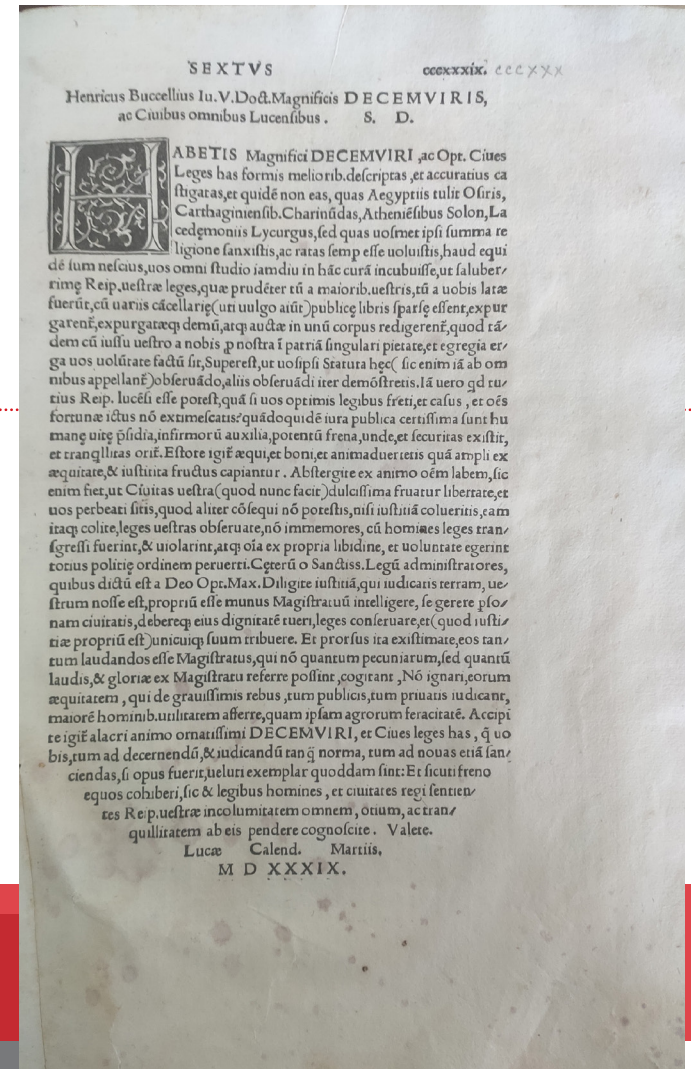 SEXTVS cccxxxix. cccxxx
Henricus Buccellius Iu. V. Doct. Magnificis DECEMVIRIS,
ac Ciuibus omnibus Lucenſibus. S. D.
HABETIS Magnifici DECEMVIRI, ac Opt. Ciues
Leges has formis meliorib. deſcriptas, et accuratius ca
ſtigatas, et quidē non eas, quas Aegyptiis tulit Oſiris,
Carthaginienſib. Charinūdas, Atheniēſibus Solon, La
cedęmoniis Lycurgus, ſed quas uoſmet ipſi ſumma re
ligione ſanxiſtis, ac ratas ſemp eſſe uoluiſtis, haud equi
dē ſum neſcius, uos omni ſtudio iamdiu in hāc curā incubuiſſe, ut ſaluber/
rimę Reip. ueſtræ leges, quæ prudēter tū a maiorib. ueſtris, tū a uobis latæ
fuerūt, cū uariis cācellarię (uti uulgo aiūt) publicę libris ſparſę eſſent, expur
garent̄, expurgatæq; demū, atq; auctæ in unū corpus redigerent̄, quod tā/
dem cū iuſſu ueſtro a nobis ꝓ noſtra ī patriā ſingulari pietate, et egregia er/
ga uos uolūtate factū ſit, Supereſt, ut uoſipſi Statuta hęc (ſic enim iā ab om
nibus appellant̄) obſeruādo, aliis obſeruādi iter demōſtretis. Iā uero qd tu/
tius Reip. lucēſi eſſe poteſt, quā ſi uos optimis legibus freti, et caſus, et oēs
fortunæ ictus nō extimeſcatis? quādoquidē iura publica certiſſima ſunt hu
manę uitę p̄ſidia, infirmorū auxilia, potentū frena, unde, et ſecuritas exiſtit,
et tranqllitas orit̄. Eſtote igit̄ æqui, et boni, et animaduertetis quā ampli ex
æquitate, & iuſtitita fructus capiantur. Abſtergite ex animo oēm labem, ſic
enim fiet, ut Ciuitas ueſtra (quod nunc facit) dulciſſima fruatur libertate, et
uos perbeati ſitis, quod aliter cōſequi nō poteſtis, niſi iuſtitiā colueritis, eam
itaq; colite, leges ueſtras obſeruate, nō immemores, cū homines leges tran/
ſgreſſi fuerint, & uiolarint, atq; oīa ex propria libidine, et uoluntate egerint
totius politię ordinem peruerti. Cęterū o Sanctiss. Legū adminiſtratores,
quibus dictū eſt a Deo Opt. Max. Diligite iuſtitiā, qui iudicatis terram, ue/
ſtrum noſſe eſt, propriū eſſe munus Magiſtratuū intelligere, ſe gerere ꝑſo/
nam ciuitatis, debereq; eius dignitatē tueri, leges conſeruare, et (quod iuſti/
tiæ propriū eſt) unicuiq; ſuum tribuere. Et prorſus ita exiſtimate, eos tan/
tum laudandos eſſe Magiſtratus, qui nō quantum pecuniarum, ſed quantū
laudis, & gloriæ ex Magiſtratu referre poſſint, cogitant, Nō ignari, eorum
æquitatem, qui de grauiſſimis rebus, tum publicis, tum priuatis iudicant,
maiorē hominib. utilitatem afferre, quam ipſam agrorum feracitatē. Accipi
te igit̄ alacri animo ornatiſſimi DECEMVIRI, et Ciues leges has, q̄ uo
bis, tum ad decernendū, & iudicandū tanq̄ norma, tum ad nouas etiā ſan/
ciendas, ſi opus fuerit, ueluti exemplar quoddam ſint: Et ſicuti freno
equos cohiberi, ſic & legibus homines, et ciuitates regi ſentien/
tes Reip. ueſtræ incolumitatem omnem, otium, ac tran/
quillitatem ab eis pendere cognoſcite. Valete.
Lucæ Calend. Martiis,
M D XXXIX.